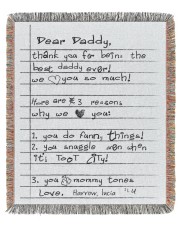 Dear Daddy,
thank you for being the
best daddy ever!
we you so much!
Here are 3 reasons
why we you:
1. you do funny things!
2. you snuggle mom when
it's TOOT City!
3. you mommy tones
Love,